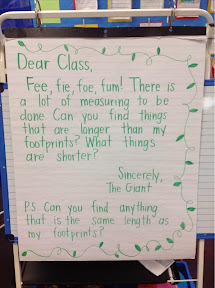 Dear Class,
Fee, fie, foe, fum! There is
a lot of measuring to be
done Can you find things
that are longer than my
footprints? What things
are shorter?
Sincerely,
The Giant
P.S. Can you find anything
that is the same length as
my footprints?